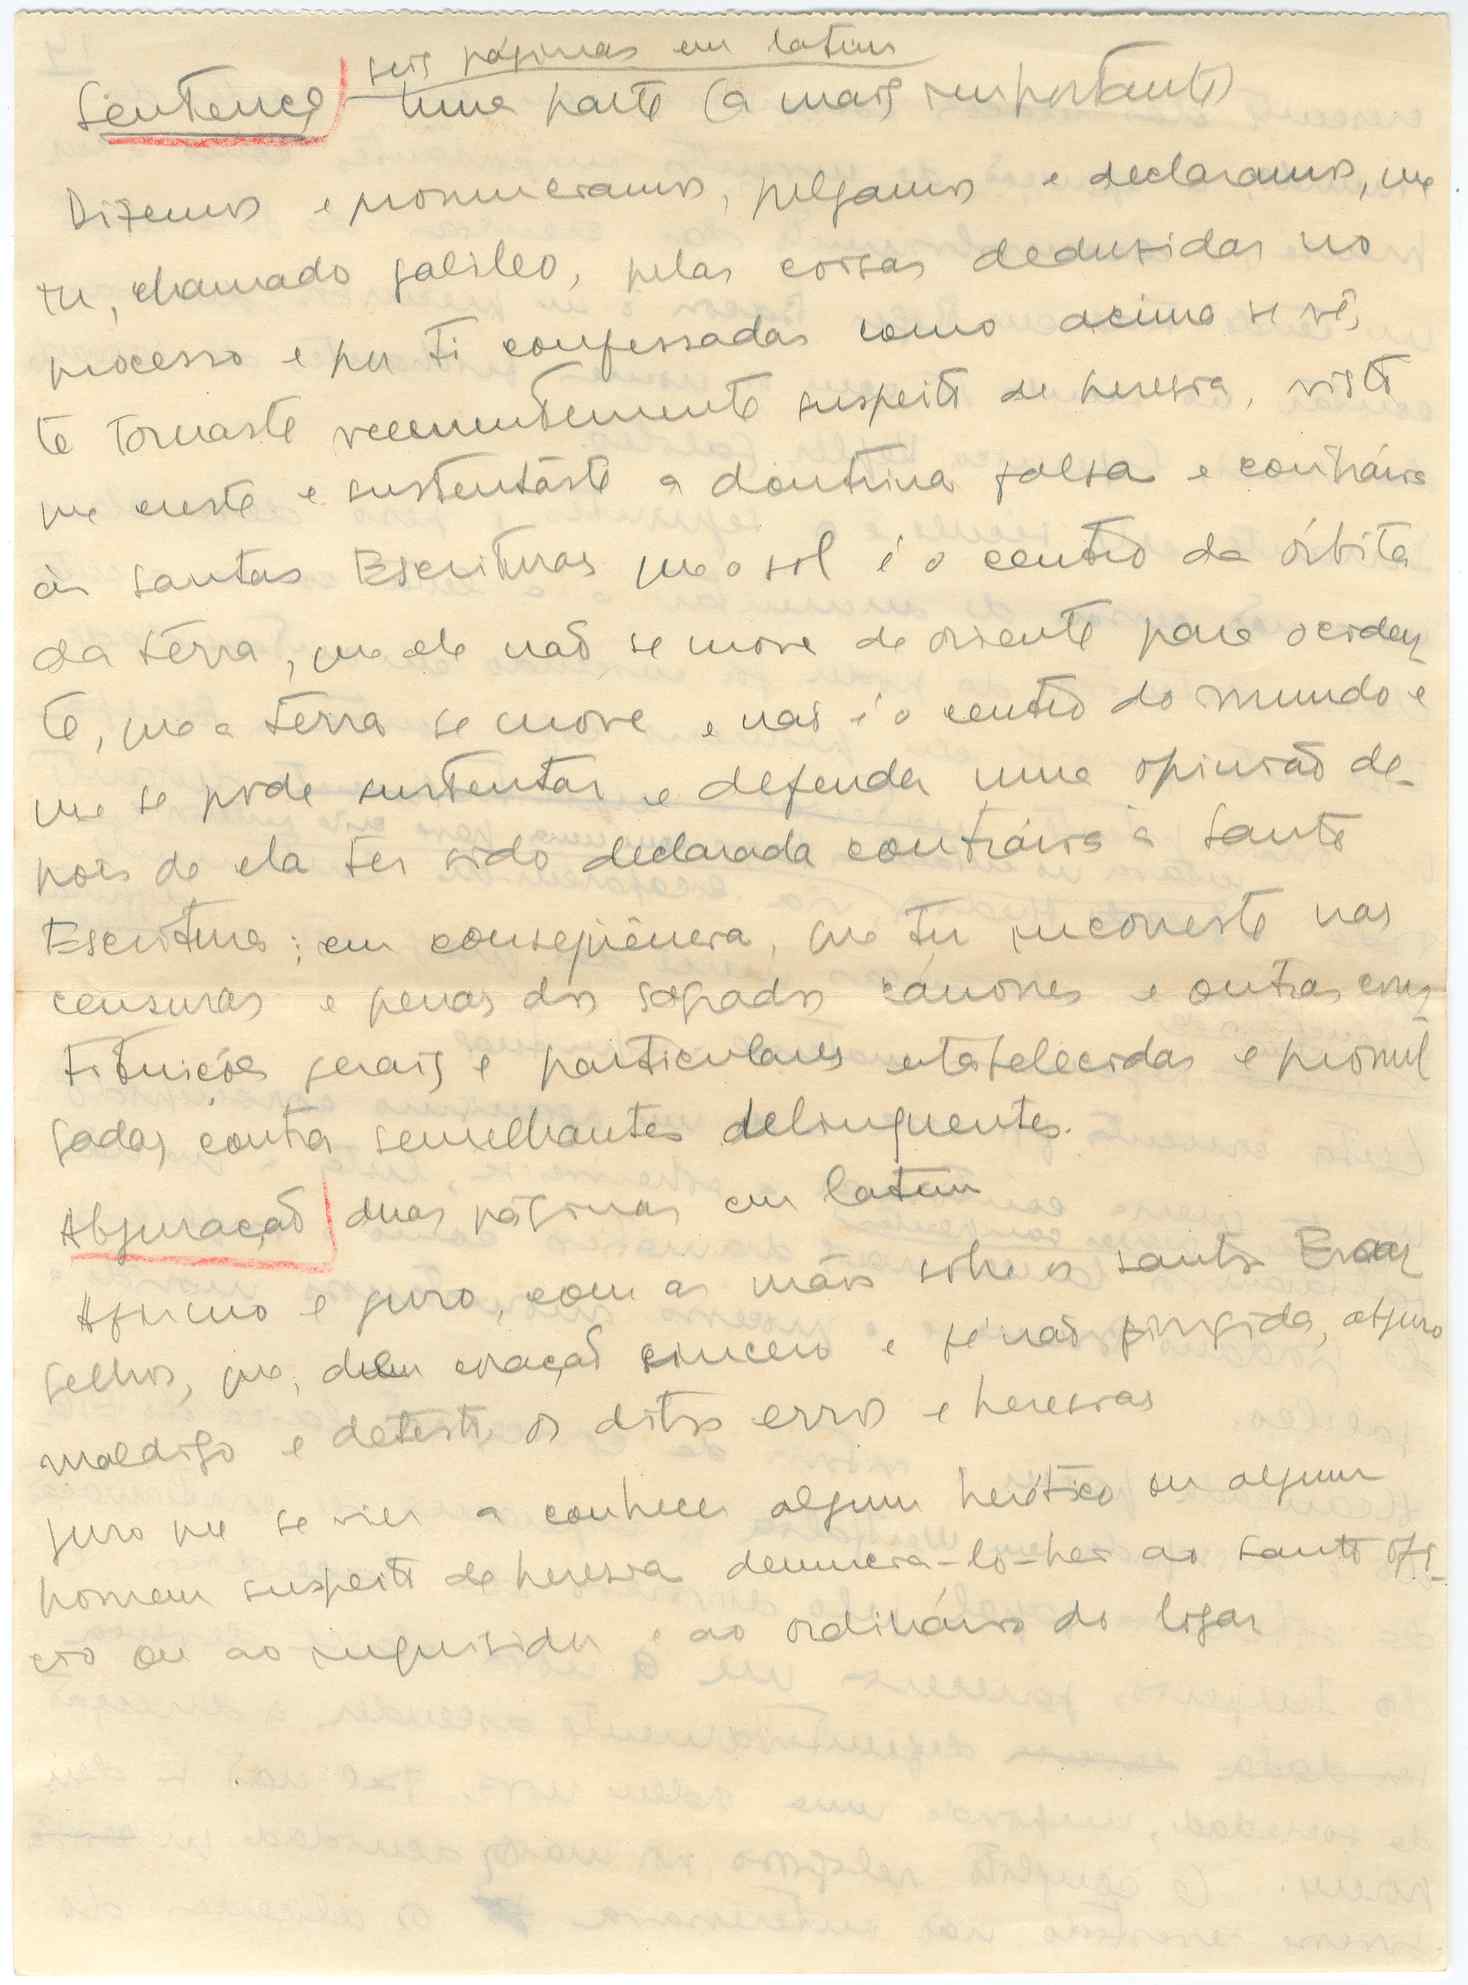 seis páginas em latim
Sentença uma parte (a mais importante)
Dizemos e pronunciamos, julgamos e declaramos, que
tu, chamado Galileo, pelas coisas deduzidas no
processo e por ti confessadas como acima se vê,
te tornaste veementemente suspeito de heresia, visto
que creste e sustentaste a doutrina falsa e contrária
às santas Escrituras que o sol é o centro da órbita
da terra, que ele não se move de oriente para ociden-
te, que a terra se move e não é o centro do mundo e
que se pode sustentar e defender uma opinião de-
pois de ela ter sido declarada contrária à Santa
Escritura; em conseqüência, que tu incorreste nas
censuras e penas dos sagrados cânones e outras cons-
tituições gerais e particulares estabelecidas e promul
gadas contra semelhantes delinquentes.
Abjuração duas páginas em latim
Afirmo e juro, com as mãos sobre os santos Evan
gelhos, que, de coração sincero e fé não fingida, abjuro
maldigo e detesto os ditos erros e heresias
juro que se vier a conhecer algum herético ou algum
homem suspeito de heresia denuncia-lo-hei ao Santo Ofí-
cio ou ao inquisidor e ao ordinário do lugar